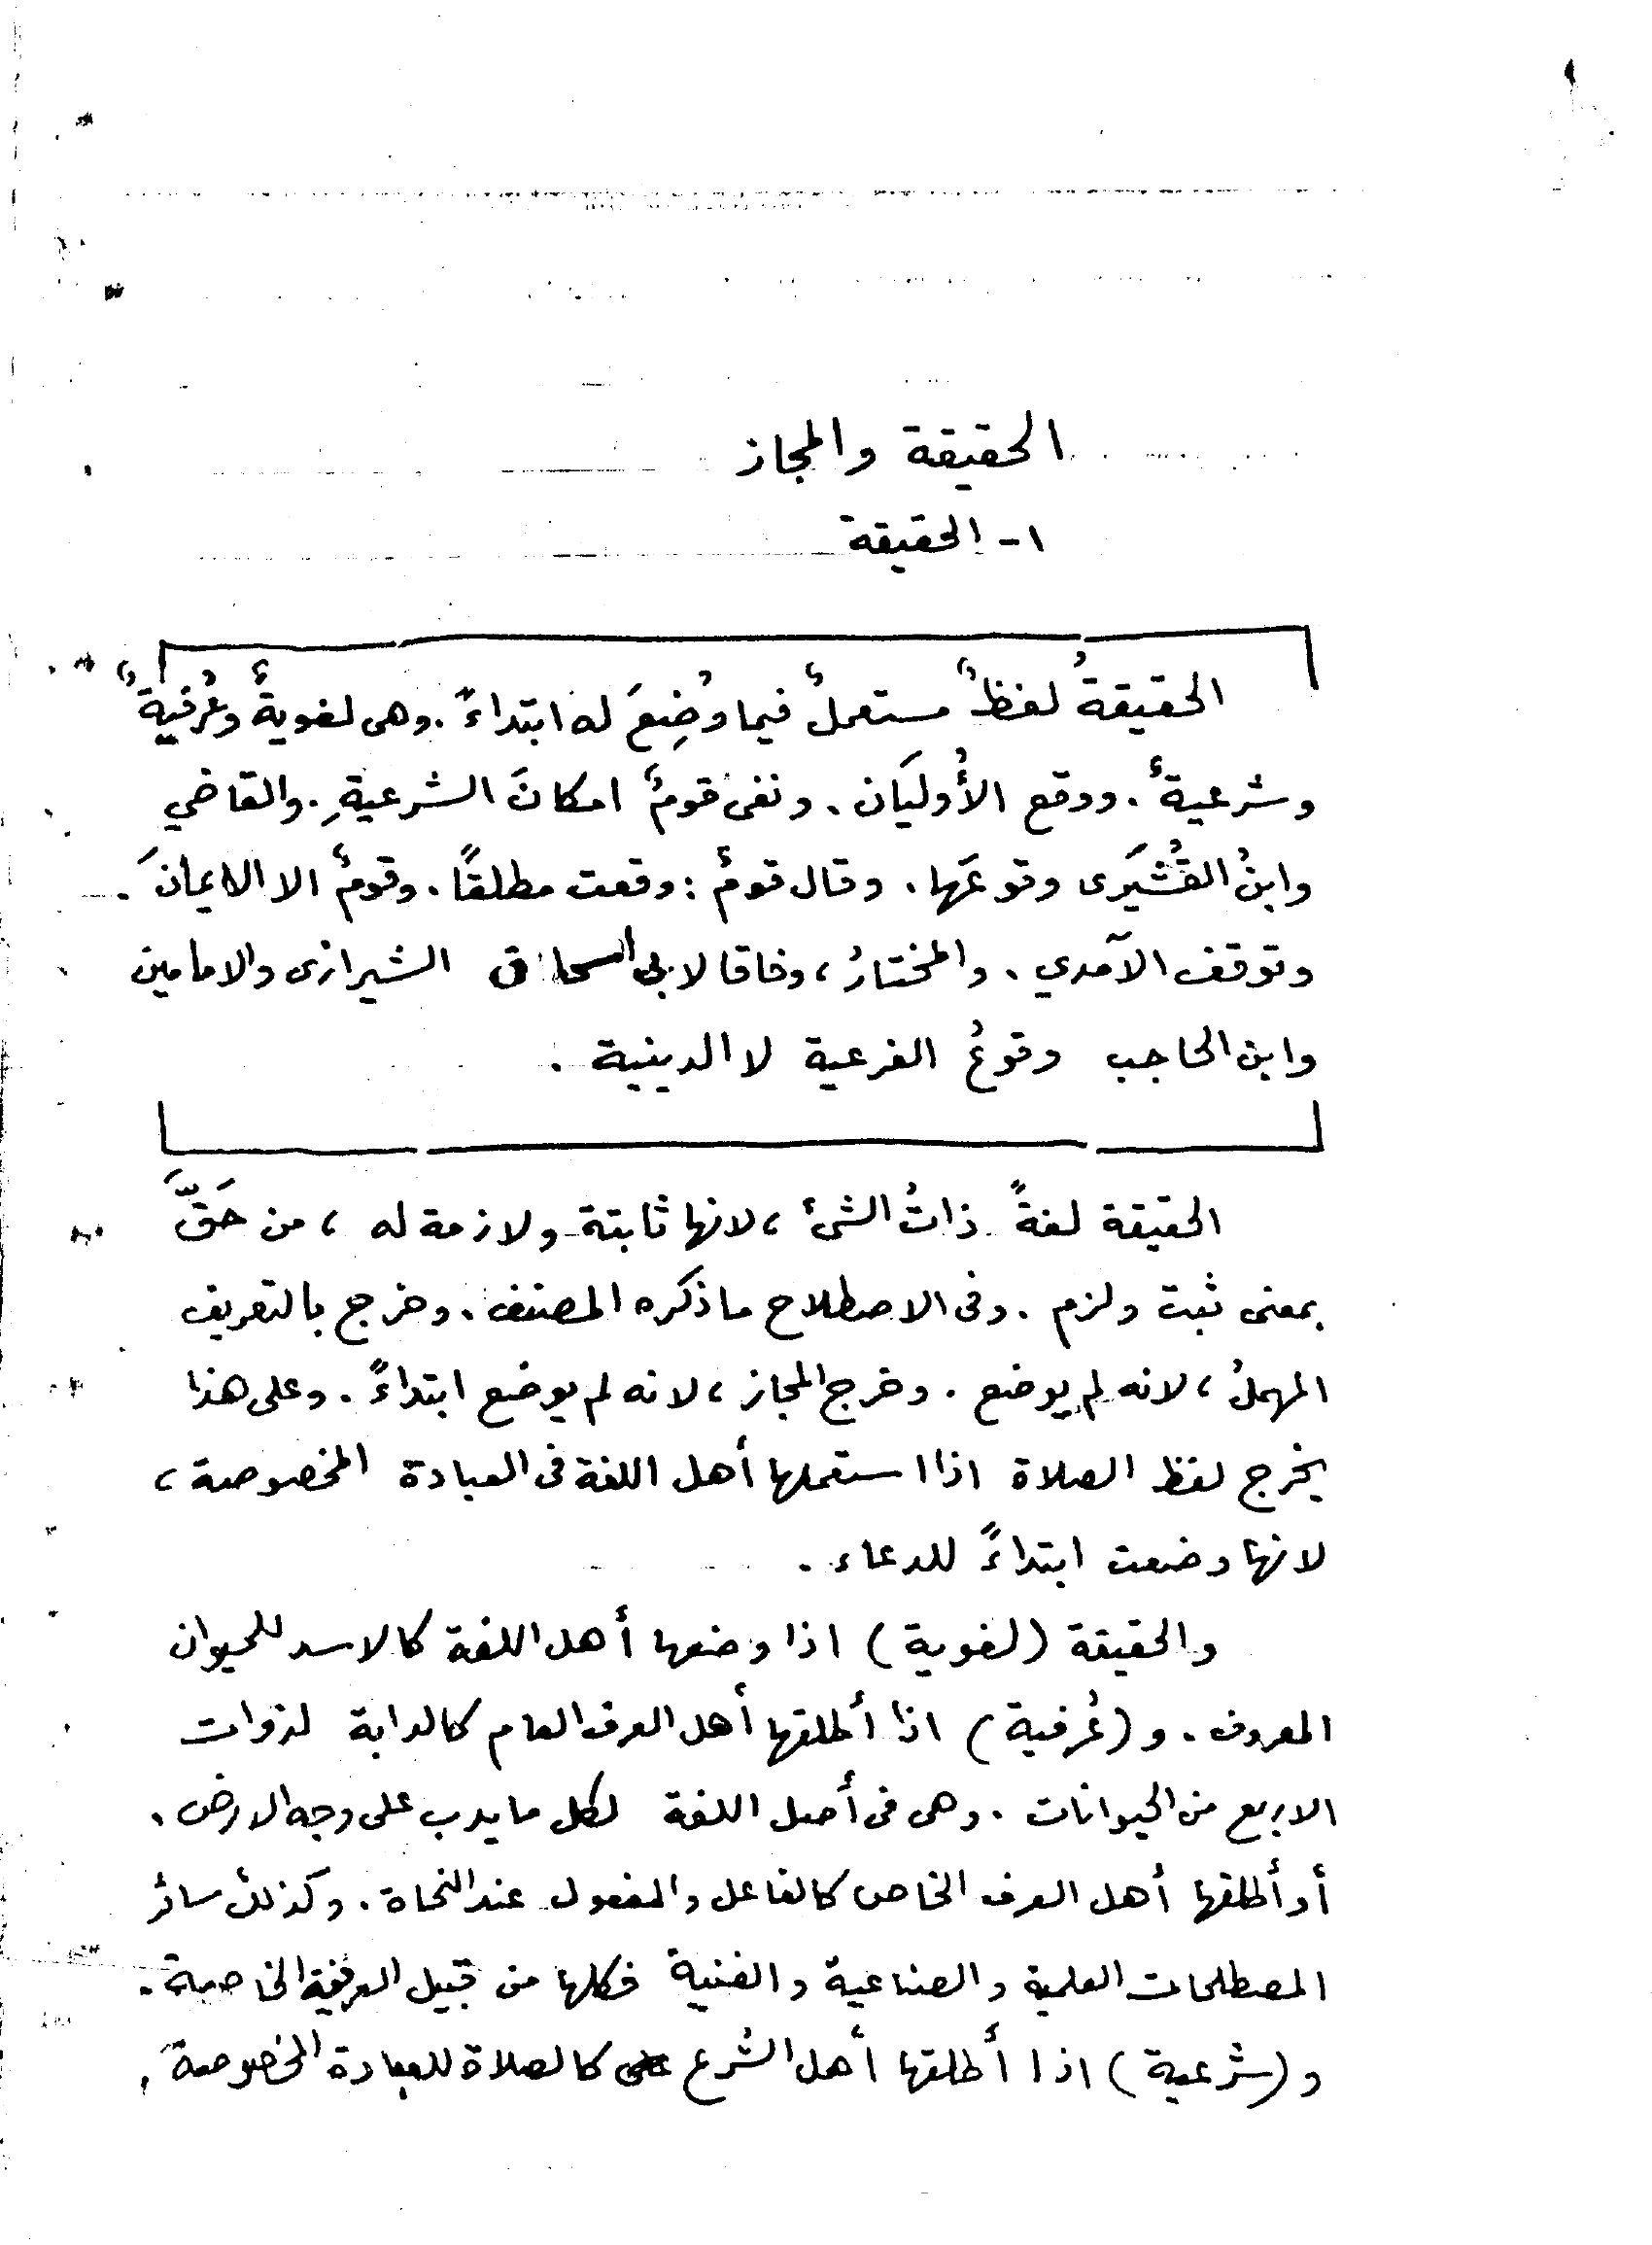 الحقيقة والمجاز
١- الحقيقة
الحقيقةُ لفظٌ مستعملٌ فيما وُضِعَ له ابتداءً. وهى لغويةٌ وعُرفيةٌ
وشرعيةٌ. ووقع الأُوليَان. ونفى قومٌ امكانَ الشرعيةِ. والقاضي
وابنُ القُشَيرى وقوعَها. وقال قومٌ: وقعت مطلقًا. وقومٌ الا الايمانَ.
وتوقف الآمدي. والمختارُ، وفاقا لابى اسحاق الشيرازى والامامين
وابن الحاجب وقوعُ الفرعية لا الدينية.
الحقيقة لغةً ذاتُ الشئ، لانها ثابتة ولازمة له، من حَقَّ
بمعنى ثبت ولزم. وفى الاصطلاح ما ذكره المصنف. وخرج بالتعريف
المهملُ، لانه لم يوضع. وخرج المجاز، لانه لم يوضع ابتداءً. وعلى هذا
يخرج لفظ الصلاة اذا استعملها أهل اللغة فى العبادة المخصوصة،
لانها وضعت ابتداءً للدعاء.
والحقيقة (لغوية) اذا وضعها أهل اللغة كالاسد للحيوان
المعروف. و(عُرفية) اذا أطلقها أهل العرف العام كالدابة لذوات
الاربع من الحيوانات. وهى فى أصل اللغة لكل ما يدب على وجه الارض.
أو أطلقها أهل العرف الخاص كالفاعل والمفعول عند النحاة. وكذلك سائر
المصطلحات العلمية والصناعية والفنية فكلها من قبيل العرفية الخاصة.
و(شرعية) اذا أطلقها أهل الشرع كالصلاة للعبادة المخصوصة.